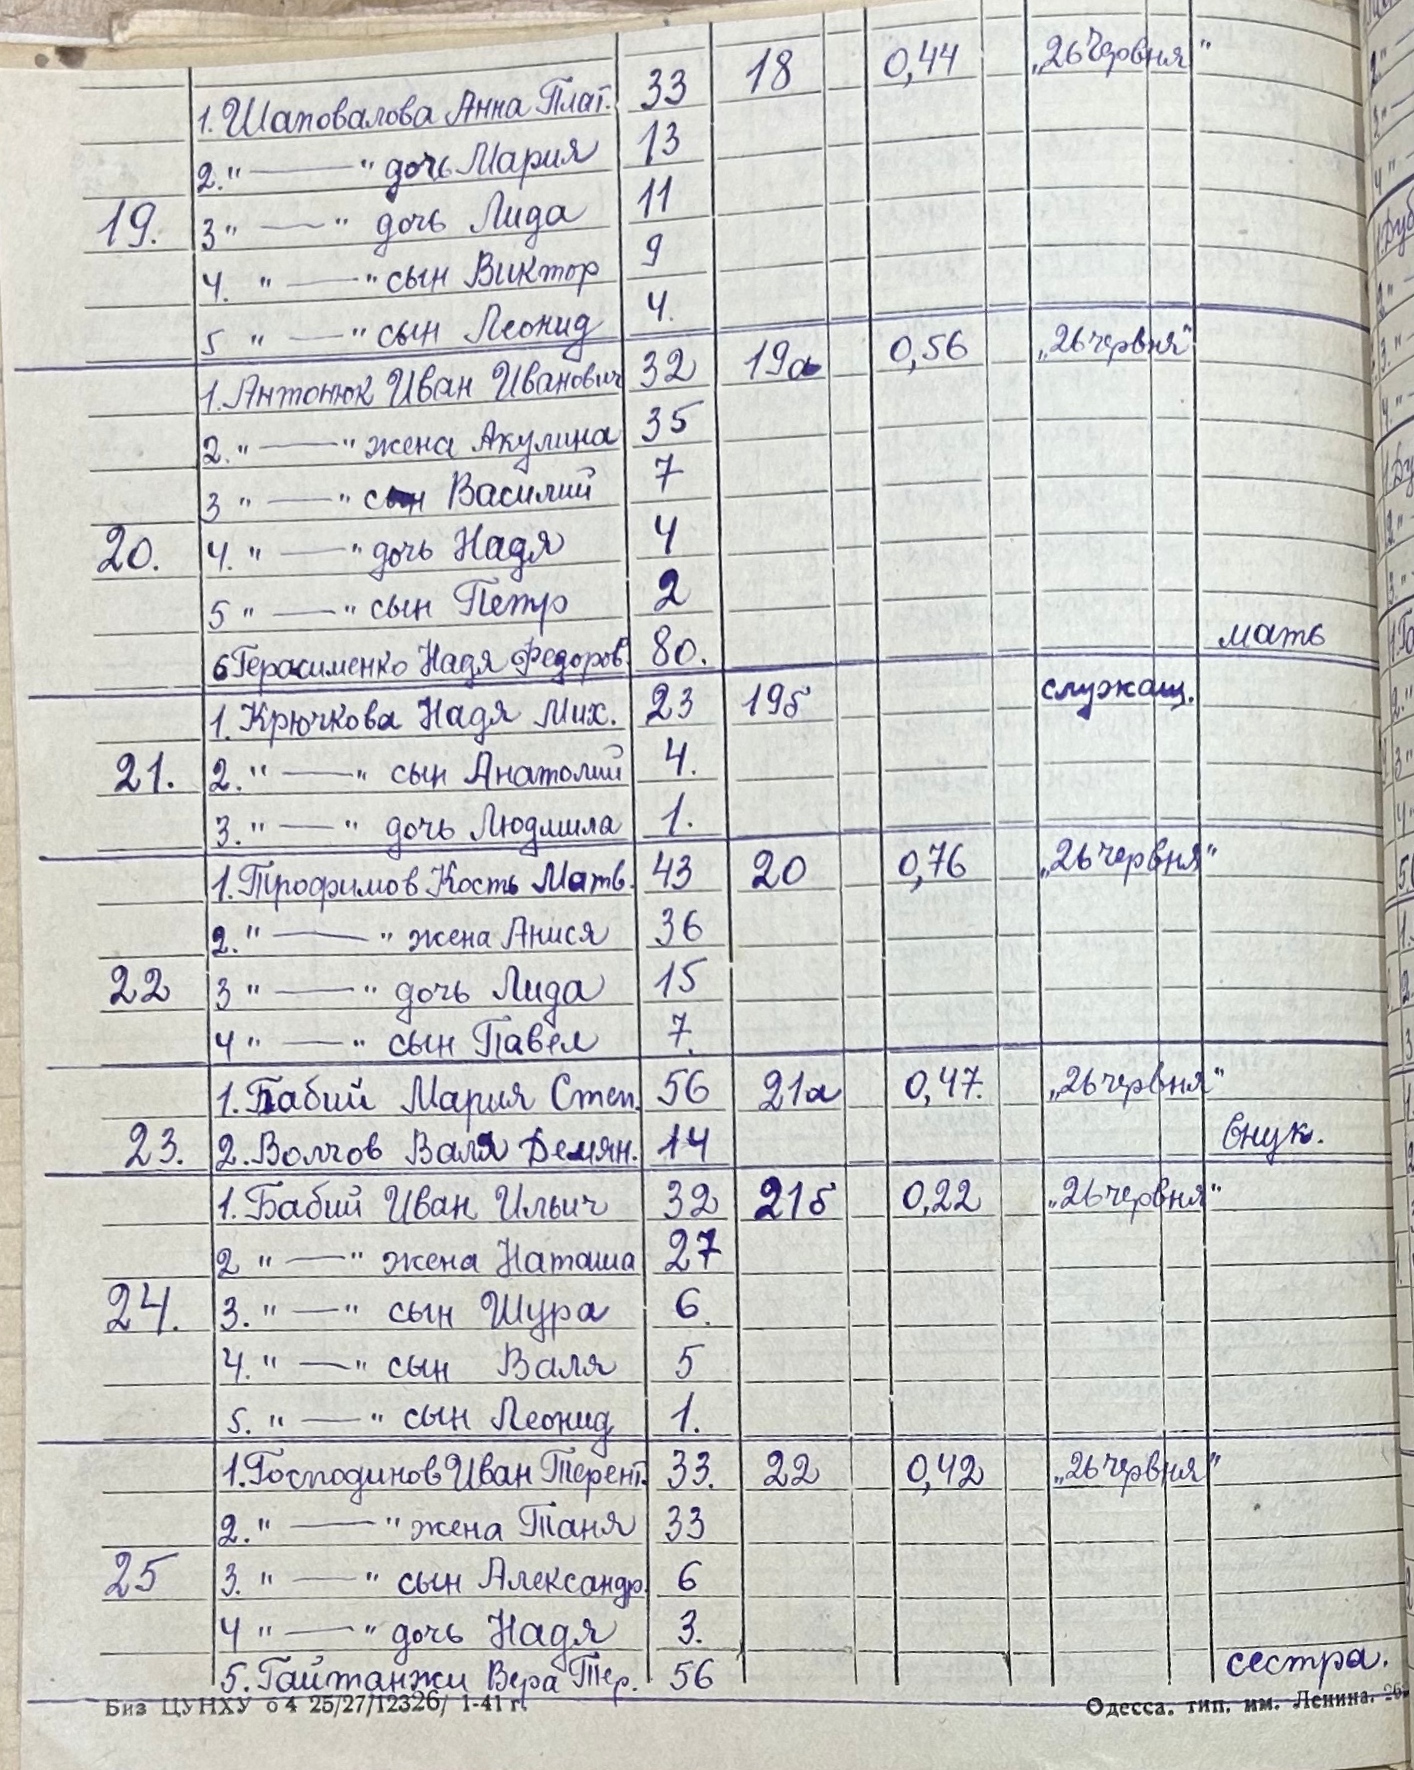 1. Шаповалова Анна Плат. 33 18 0,44 „26 Червня"
2. " — " дочь Мария 13
19. 3 " — " дочь Лида 11
4. " — " сын Виктор 9
5 " — " сын Леонид 4.
1. Антонюк Иван Иванович 32 19а 0,56 „26 червня"
2. " — " жена Акулина 35
3 " — " сын Василий 7
20. 4. " — " дочь Надя 4
5 " — " сын Петр 2
6 Герасименко Надя Федоров. 80. мать
1. Крючкова Надя Мих. 23 19б служащ.
21. 2. " — " сын Анатолий 4.
3. " — " дочь Людмила 1.
1. Трофимов Кость Матв. 43 20 0,76 „26 червня"
2. " — " жена Анися 36
22 3 " — " дочь Лида 15
4 " — " сын Павел 7.
1. Бабий Мария Степ. 56 21а 0,47. „26 червня"
23. 2. Волчов Валя Демян. 14 внук.
1. Бабий Иван Ильич 32 21б 0,22 „26 червня"
2 " — " жена Наташа 27
24. 3. " — " сын Шура 6.
4. " — " сын Валя 5
5. " — " сын Леонид 1.
1. Господинов Иван Терент. 33. 22 0,42 „26 червня"
2. " — " жена Таня 33
25 3. " — " сын Александр. 6
4 " — " дочь Надя 3.
5. Гайтанжи Вера Тер. 56 сестра.
Биз ЦУНХУ о 4 25/27/12326/ 1-41 г. Одесса. тип. им. Ленина.